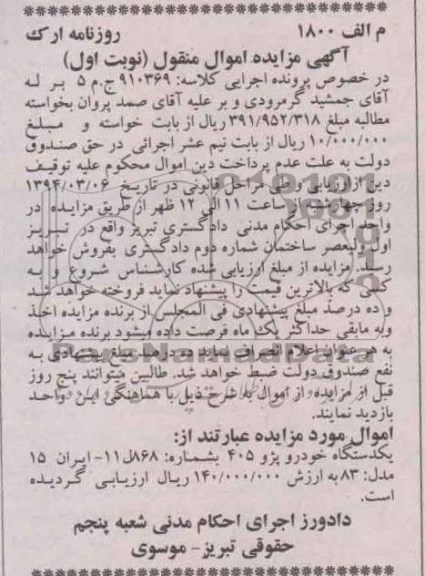 م الف ۱۸۰۰ روزنامه ارک
آگهی مزایده اموال منقول (نوبت اول)
در خصوص پرونده اجرایی کلاسه: ۹۱۰۳۶۹ ج.م ۵ بر له
آقای جمشید گرمرودی و بر علیه آقای صمد پروان بخواسته
مطالبه مبلغ ۳۹۱/۹۵۲/۳۱۸ ریال از بابت خواسته و مبلغ
۱۰/۰۰۰/۰۰۰ ریال از بابت نیم عشر اجرائی در حق صندوق
دولت به علت عدم پرداخت دین اموال محکوم علیه توقیف
دین ازارزیابی و طی مراحل قانونی در تاریخ ۱۳۹۴/۰۳/۰۶
روز چهارشنبه از ساعت ۱۱ الی ۱۲ ظهر از طریق مزایده در
واحد اجرای احکام مدنی دادگستری تبریز واقع در تبریز
اول ولیعصر ساختمان شماره دوم دادگستری بفروش خواهد
رسید. مزایده از مبلغ ارزیابی شده کارشناس شروع و به
کسی که بالاترین قیمت را پیشنهاد نماید فروخته خواهد شد
و ده درصد مبلغ پیشنهادی فی المجلس از برنده مزایده اخذ
وبه مابقی حداکثر یک ماه فرصت داده میشود برنده مزایده
به هر عنوان اعلام انصراف نماید ده درصد مبلغ پیشنهادی به
نفع صندوق دولت ضبط خواهد شد. طالبین میتوانند پنج روز
قبل از مزایده از اموال به شرح ذیل با هماهنگی این واحد
بازدید نمایند.
اموال مورد مزایده عبارتند از:
یکدستگاه خودرو پژو ۴۰۵ بشماره: ۸۶۸ل۱۱- ایران ۱۵
مدل: ۸۳ به ارزش ۱۴۰/۰۰۰/۰۰۰ ریال ارزیابی گردیده
است.
دادورز اجرای احکام مدنی شعبه پنجم
حقوقی تبریز- موسوی
ParsNamadData